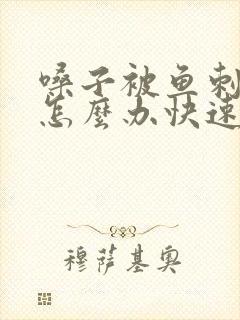 嗓子被鱼刺
怎麼办快速
穆萨基奥